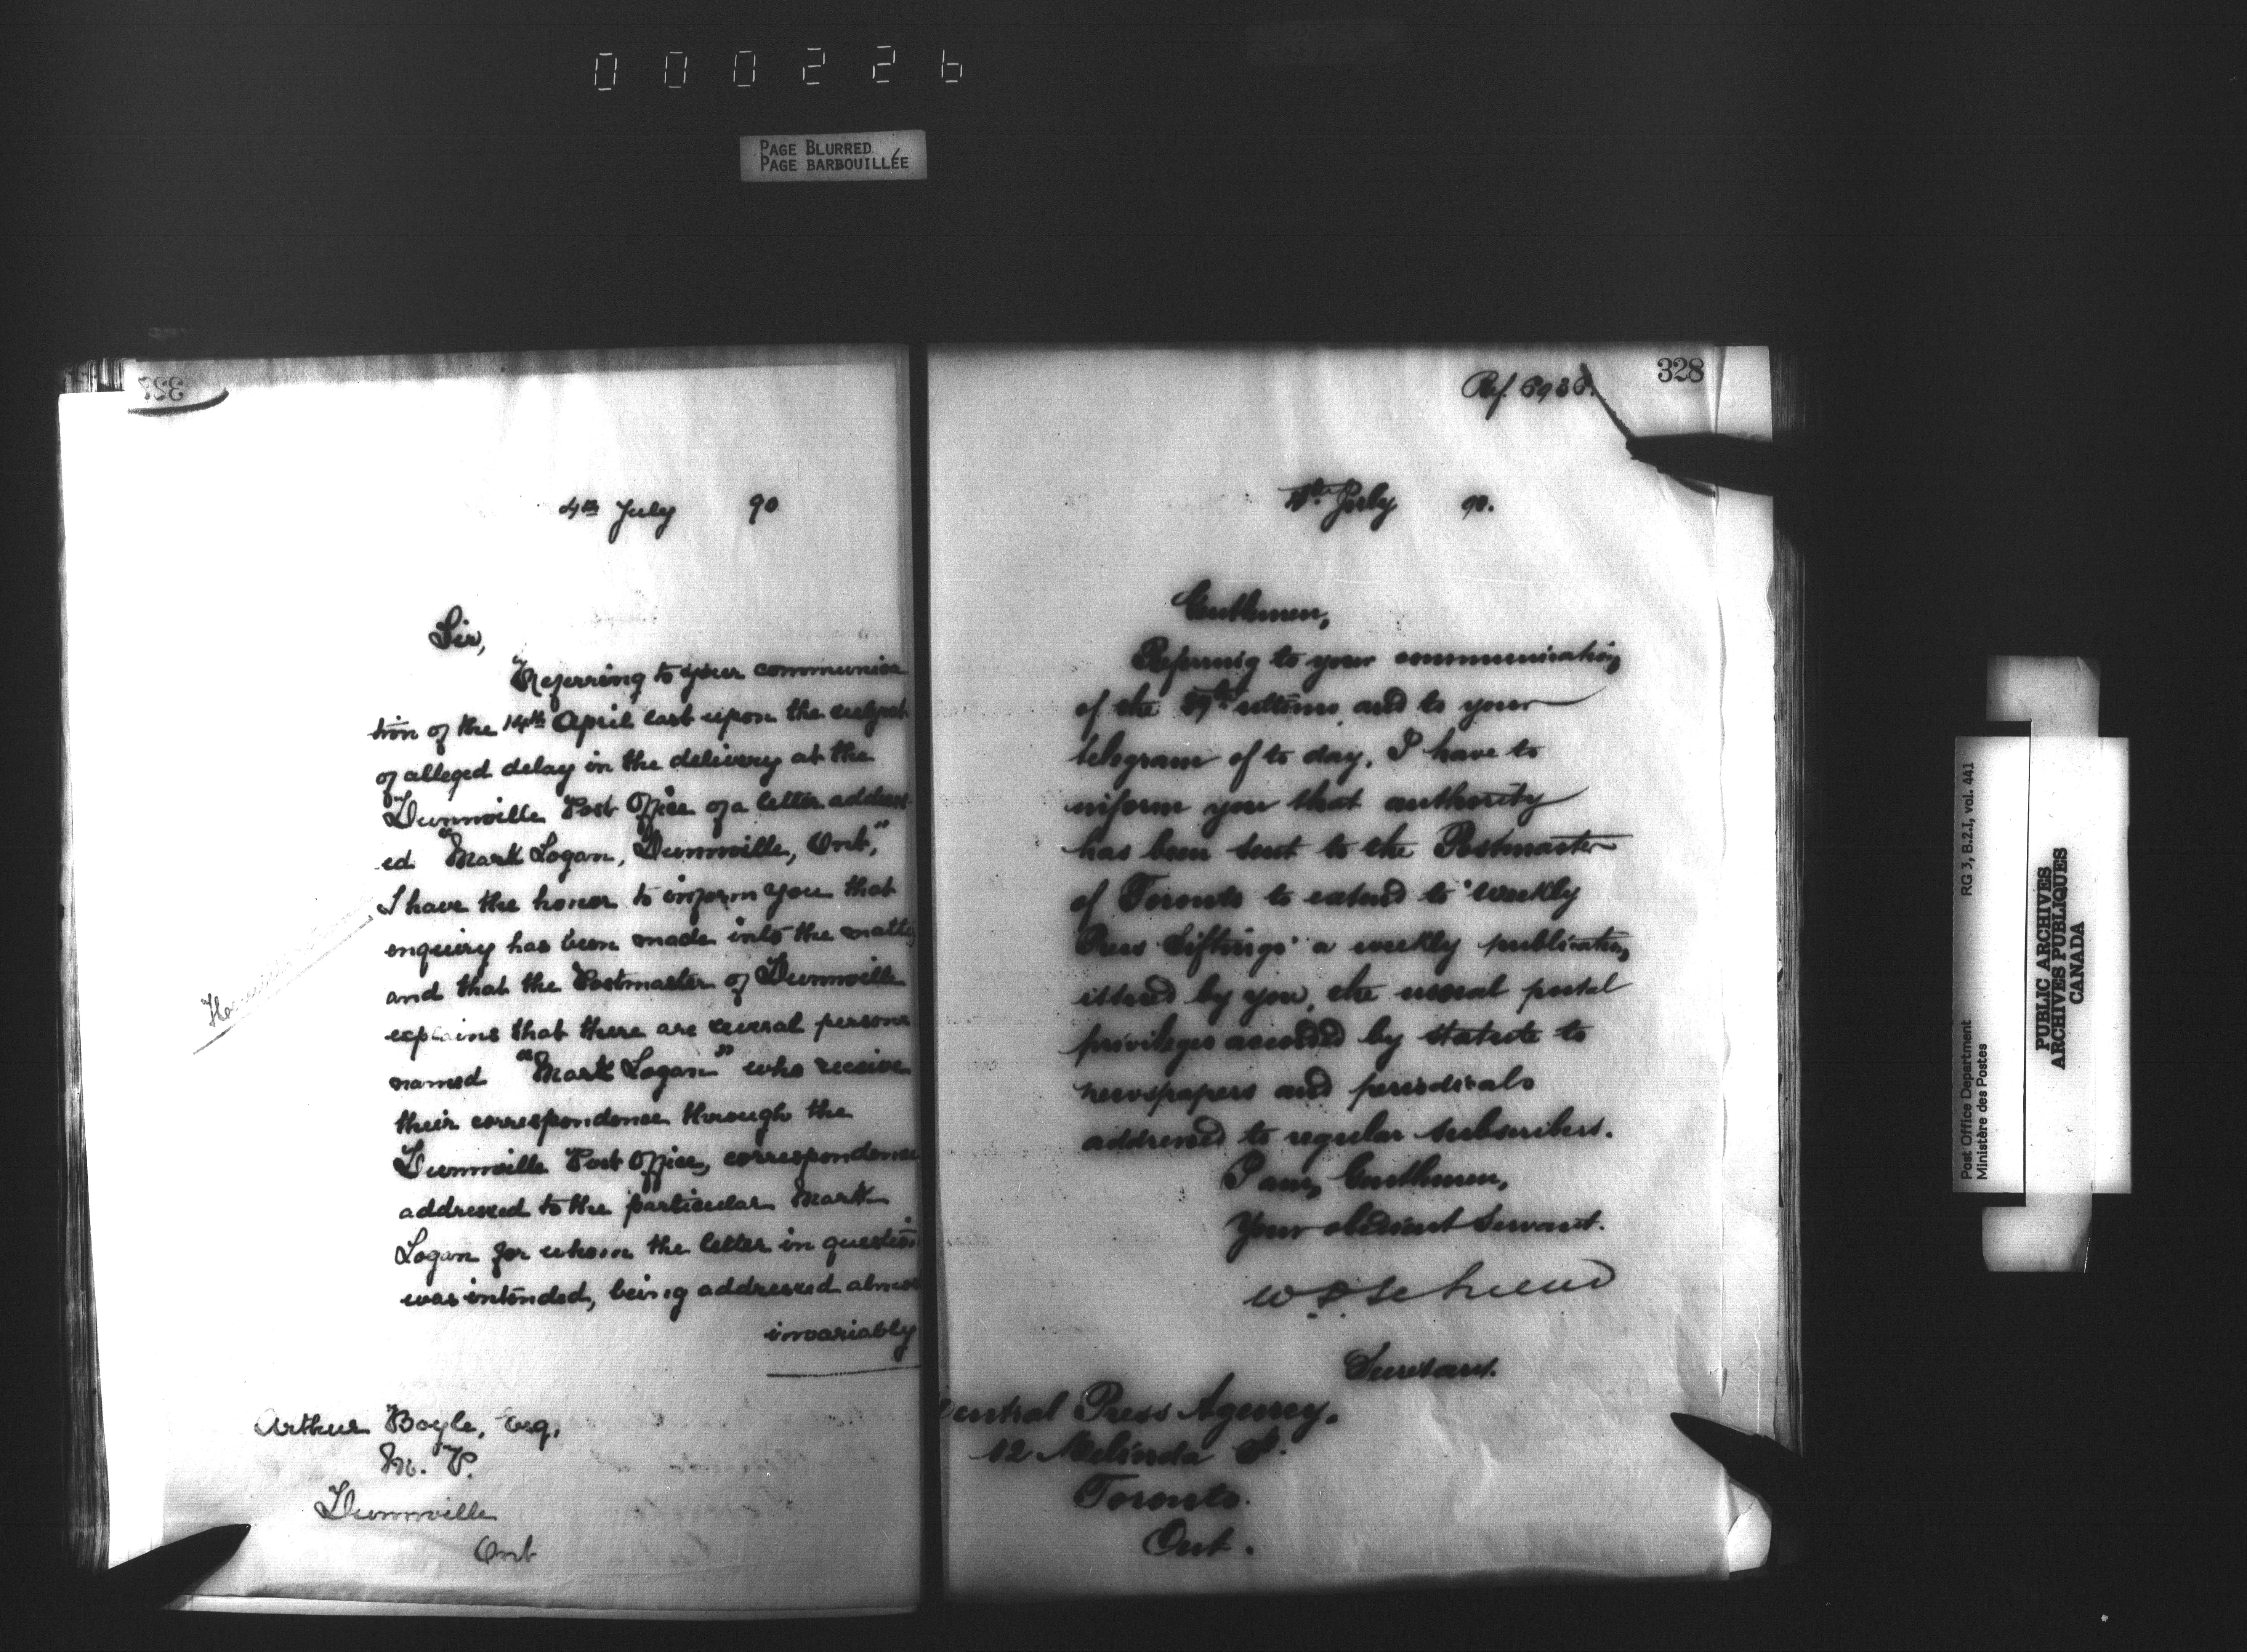 000226
PAGE BLURRED
PAGE BARBOUILLÉE
327
4th July 90
Sir,
Referring to your communica
tion of the 14th April last upon the subject
of alleged delay in the delivery at the
Dunnville Post Office of a letter address
ed "Mark Logan, Dunnville, Ont,"
I have the honor to inform you that
enquiry has been made into the matter
and that the Postmaster of Dunnville
explains that there are several persons
named "Mark Logan" who receive
their correspondence through the
Dunnville Post Office, correspondence
addressed to the particular Mark
Logan for whom the letter in question
was intended, being addressed almost
invariably
Arthur Boyle, Esq,
M. P.
Dunnville
Ont
328
Ref. 6936.
4th July 90.
Gentlemen,
Referring to your communication
of the ultimo, and to your
telegram of to day, I have to
inform you that authority
has been sent to the Postmaster
of Toronto to extend to "Weekly
Press Siftings" a weekly publication,
issued by you, the usual postal
privileges accorded by statute to
newspapers and periodicals
addressed to regular subscribers.
I am, Gentlemen,
Your obedient Servant.
Secretary.
Central Press Agency,
12 Melinda St.
Toronto.
Ont.
Post Office Department
Ministère des Postes
RG 3, B.2.I, vol. 441
PUBLIC ARCHIVES
ARCHIVES PUBLIQUES
CANADA